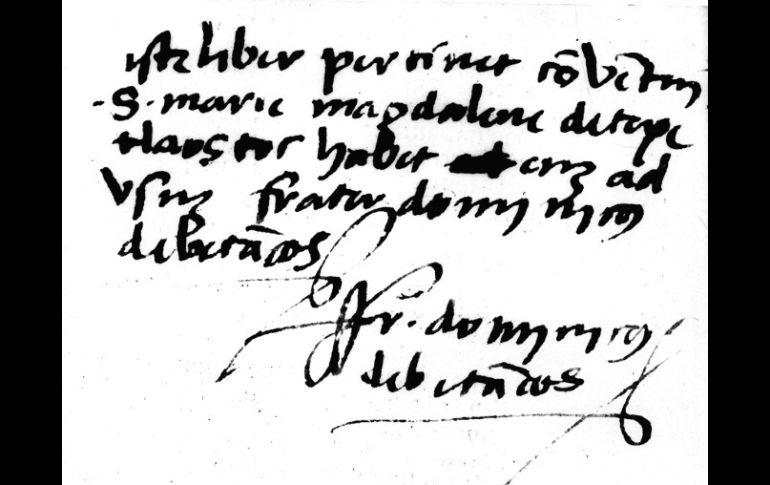 iste liber pertinet cōvētui
.S. marie magdalene detepe
tlaostoc habet eius ad
Usus frater dominicus
debetācos
fr. dominicus
debetācos